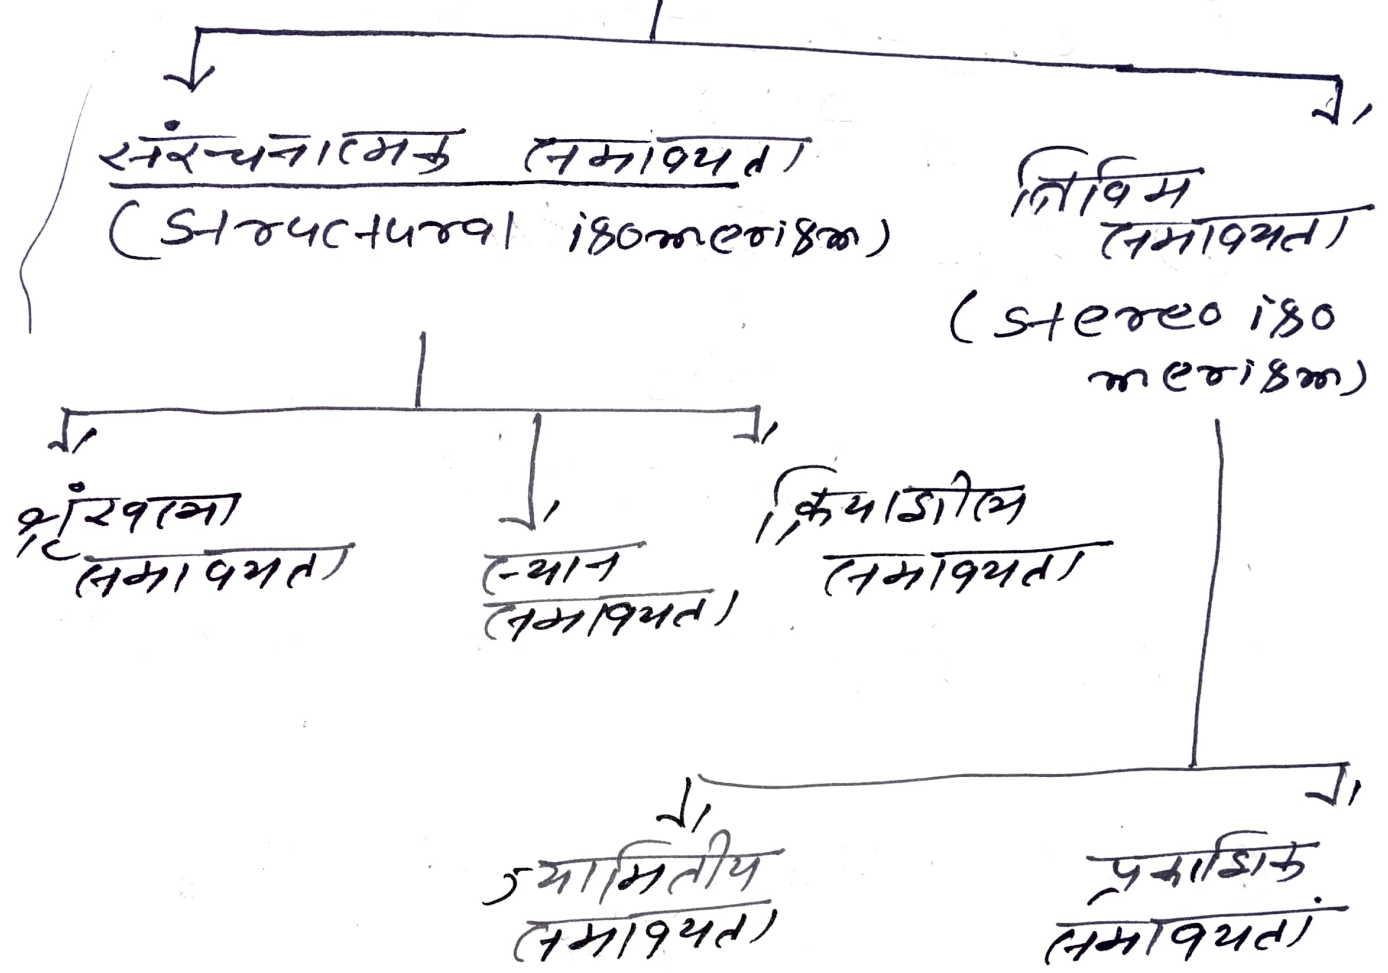 संरचनात्मक समावयता
(Structural isomerism)
त्रिविम
समावयता
(stereo iso
merism)
श्रृंखला
समावयता
स्थान
समावयता
क्रियाशील
समावयता
ज्यामितीय
समावयता
प्रकाशिक
समावयता